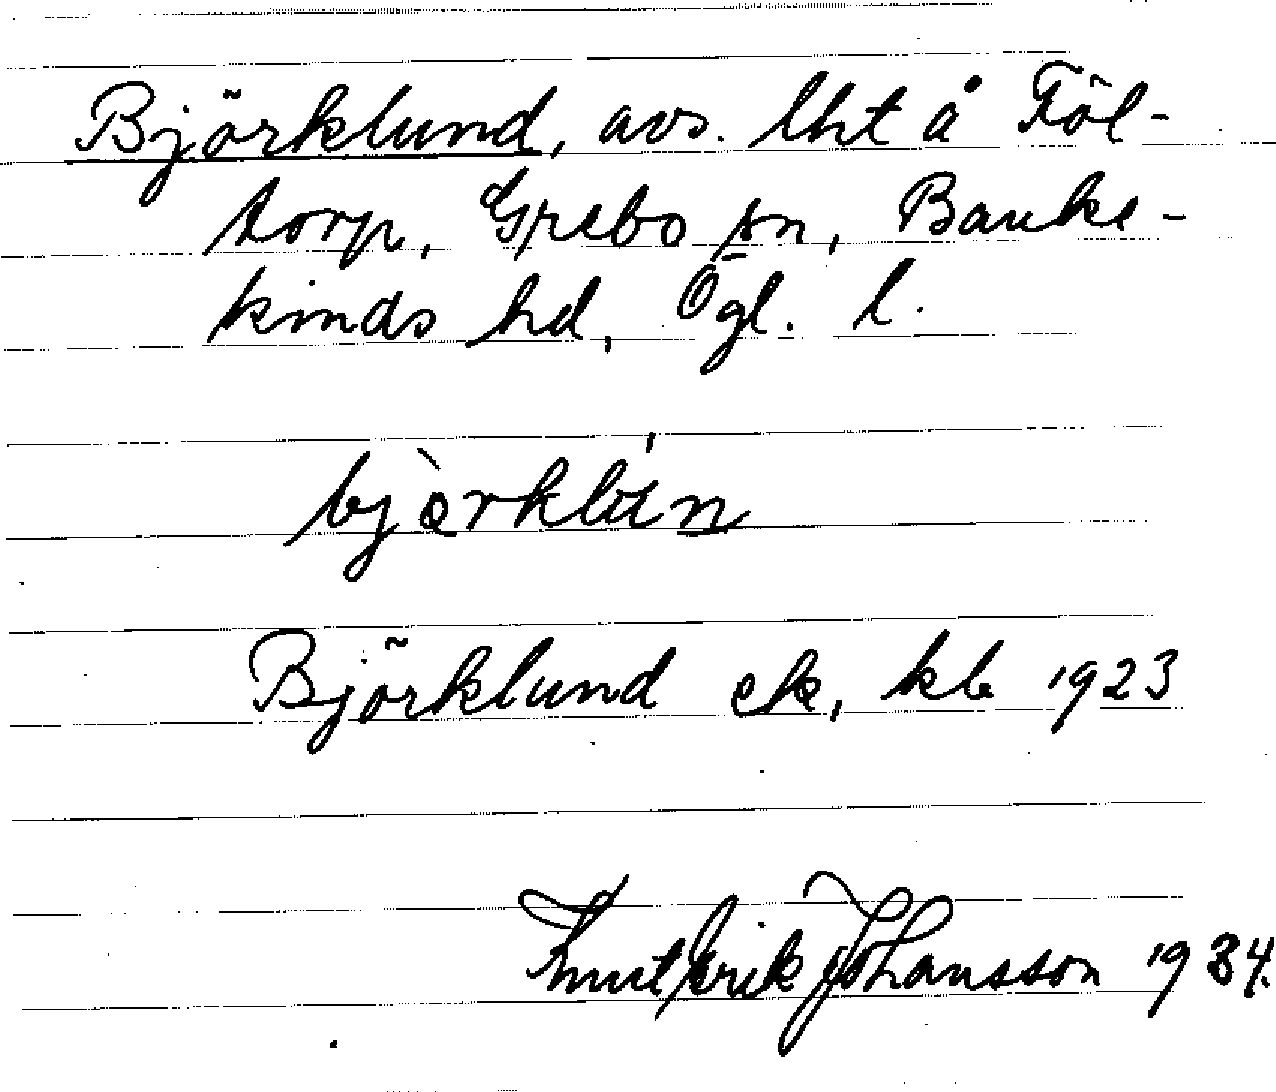 Björklund, avs. lht å Föl-
torp, Grebo sn, Banke-
kinds hd, Ögl. l.
bjὸrklún
Björklund ek, kb 1923
Knut Erik Johansson 1934.